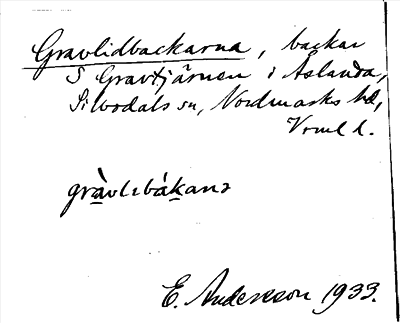 Gravlidbackarna, backar
S Gravtjärnen i Åslanda,
Silbodals sn, Nordmarks hd,
Vrml l.
gràvlıbákanə
E. Andersson 1933.